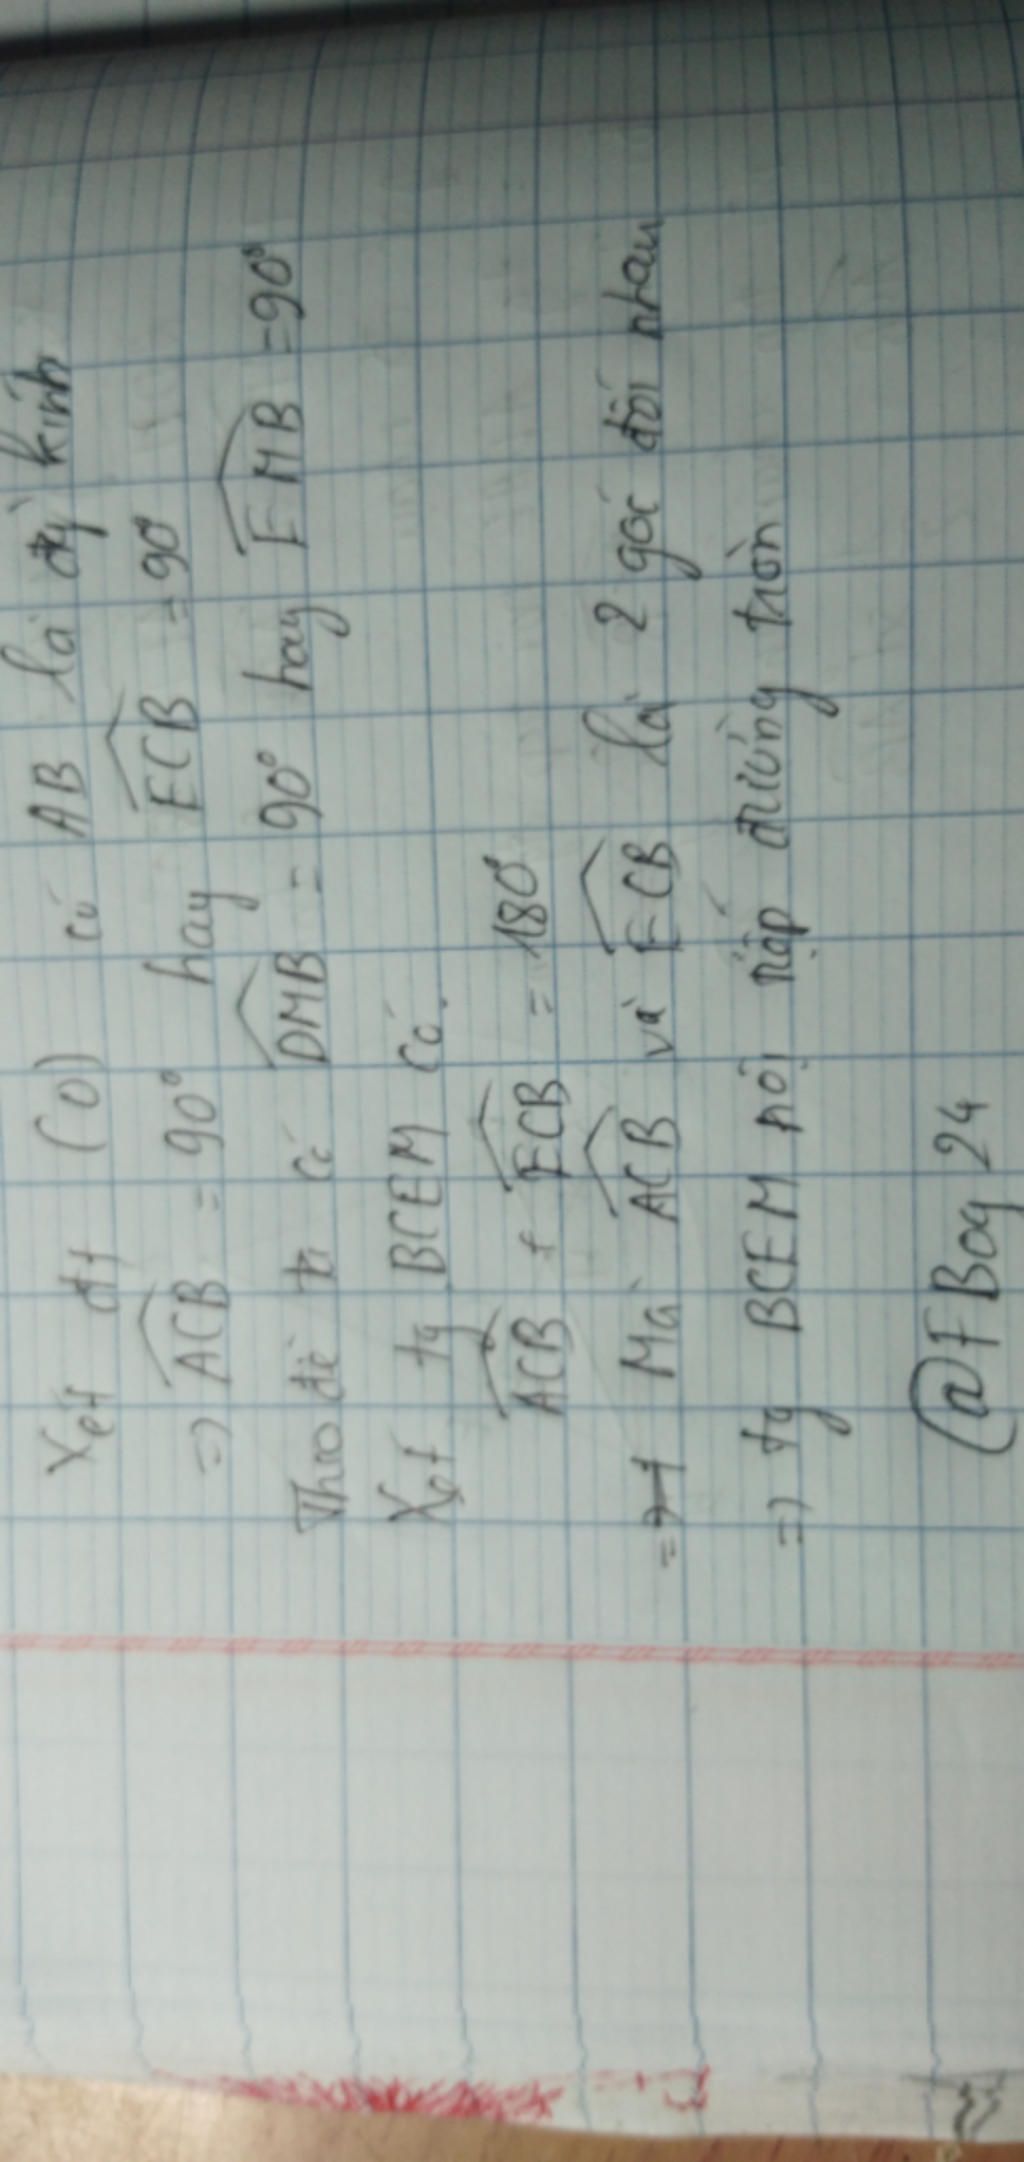 Xét đt (O) có AB là đg kính
=> ACB = 90° hay ECB = 90°
Theo đề ta có DMB = 90° hay EMB = 90°
Xét tg BCEM có:
ACB + ECB = 180°
=> Mà ACB và ECB là 2 góc đối nhau
=> tg BCEM nội tiếp đường tròn
@FBoy24